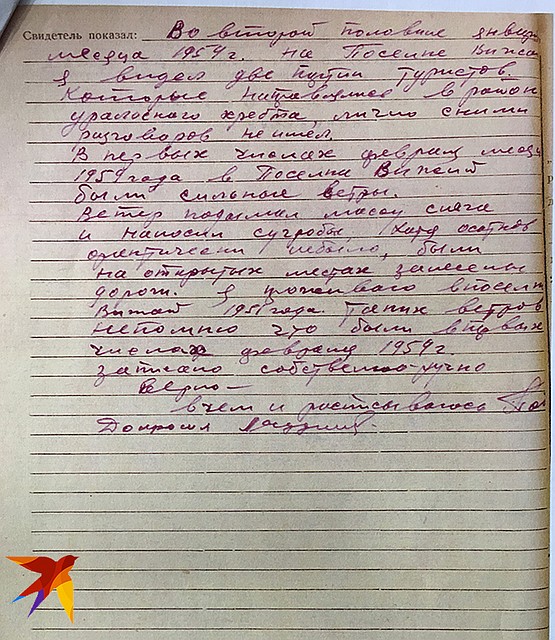 Свидетель показал: Во второй половине январ
месяца 1959 г. на Поселке Вижа
я видел две группы туристов.
Которые направлялись в район
уральского хребта, лично с ними
разговоров не имел.
В первых числах февраля меся
1959 года в Поселке Вижай
были сильные ветры.
Ветер подымал массы снега
и наносил сугробы Хотя осатков
фактически небыло, были
на открытых местах занесены
дороги. Я проживаю в поселк
Вижай с 1951 года. Таких ветров
непомню что были в первых
числах февраля 1959 г.
записано собственно-ручно
Верно —
в чем и расписываюсь
Допросил